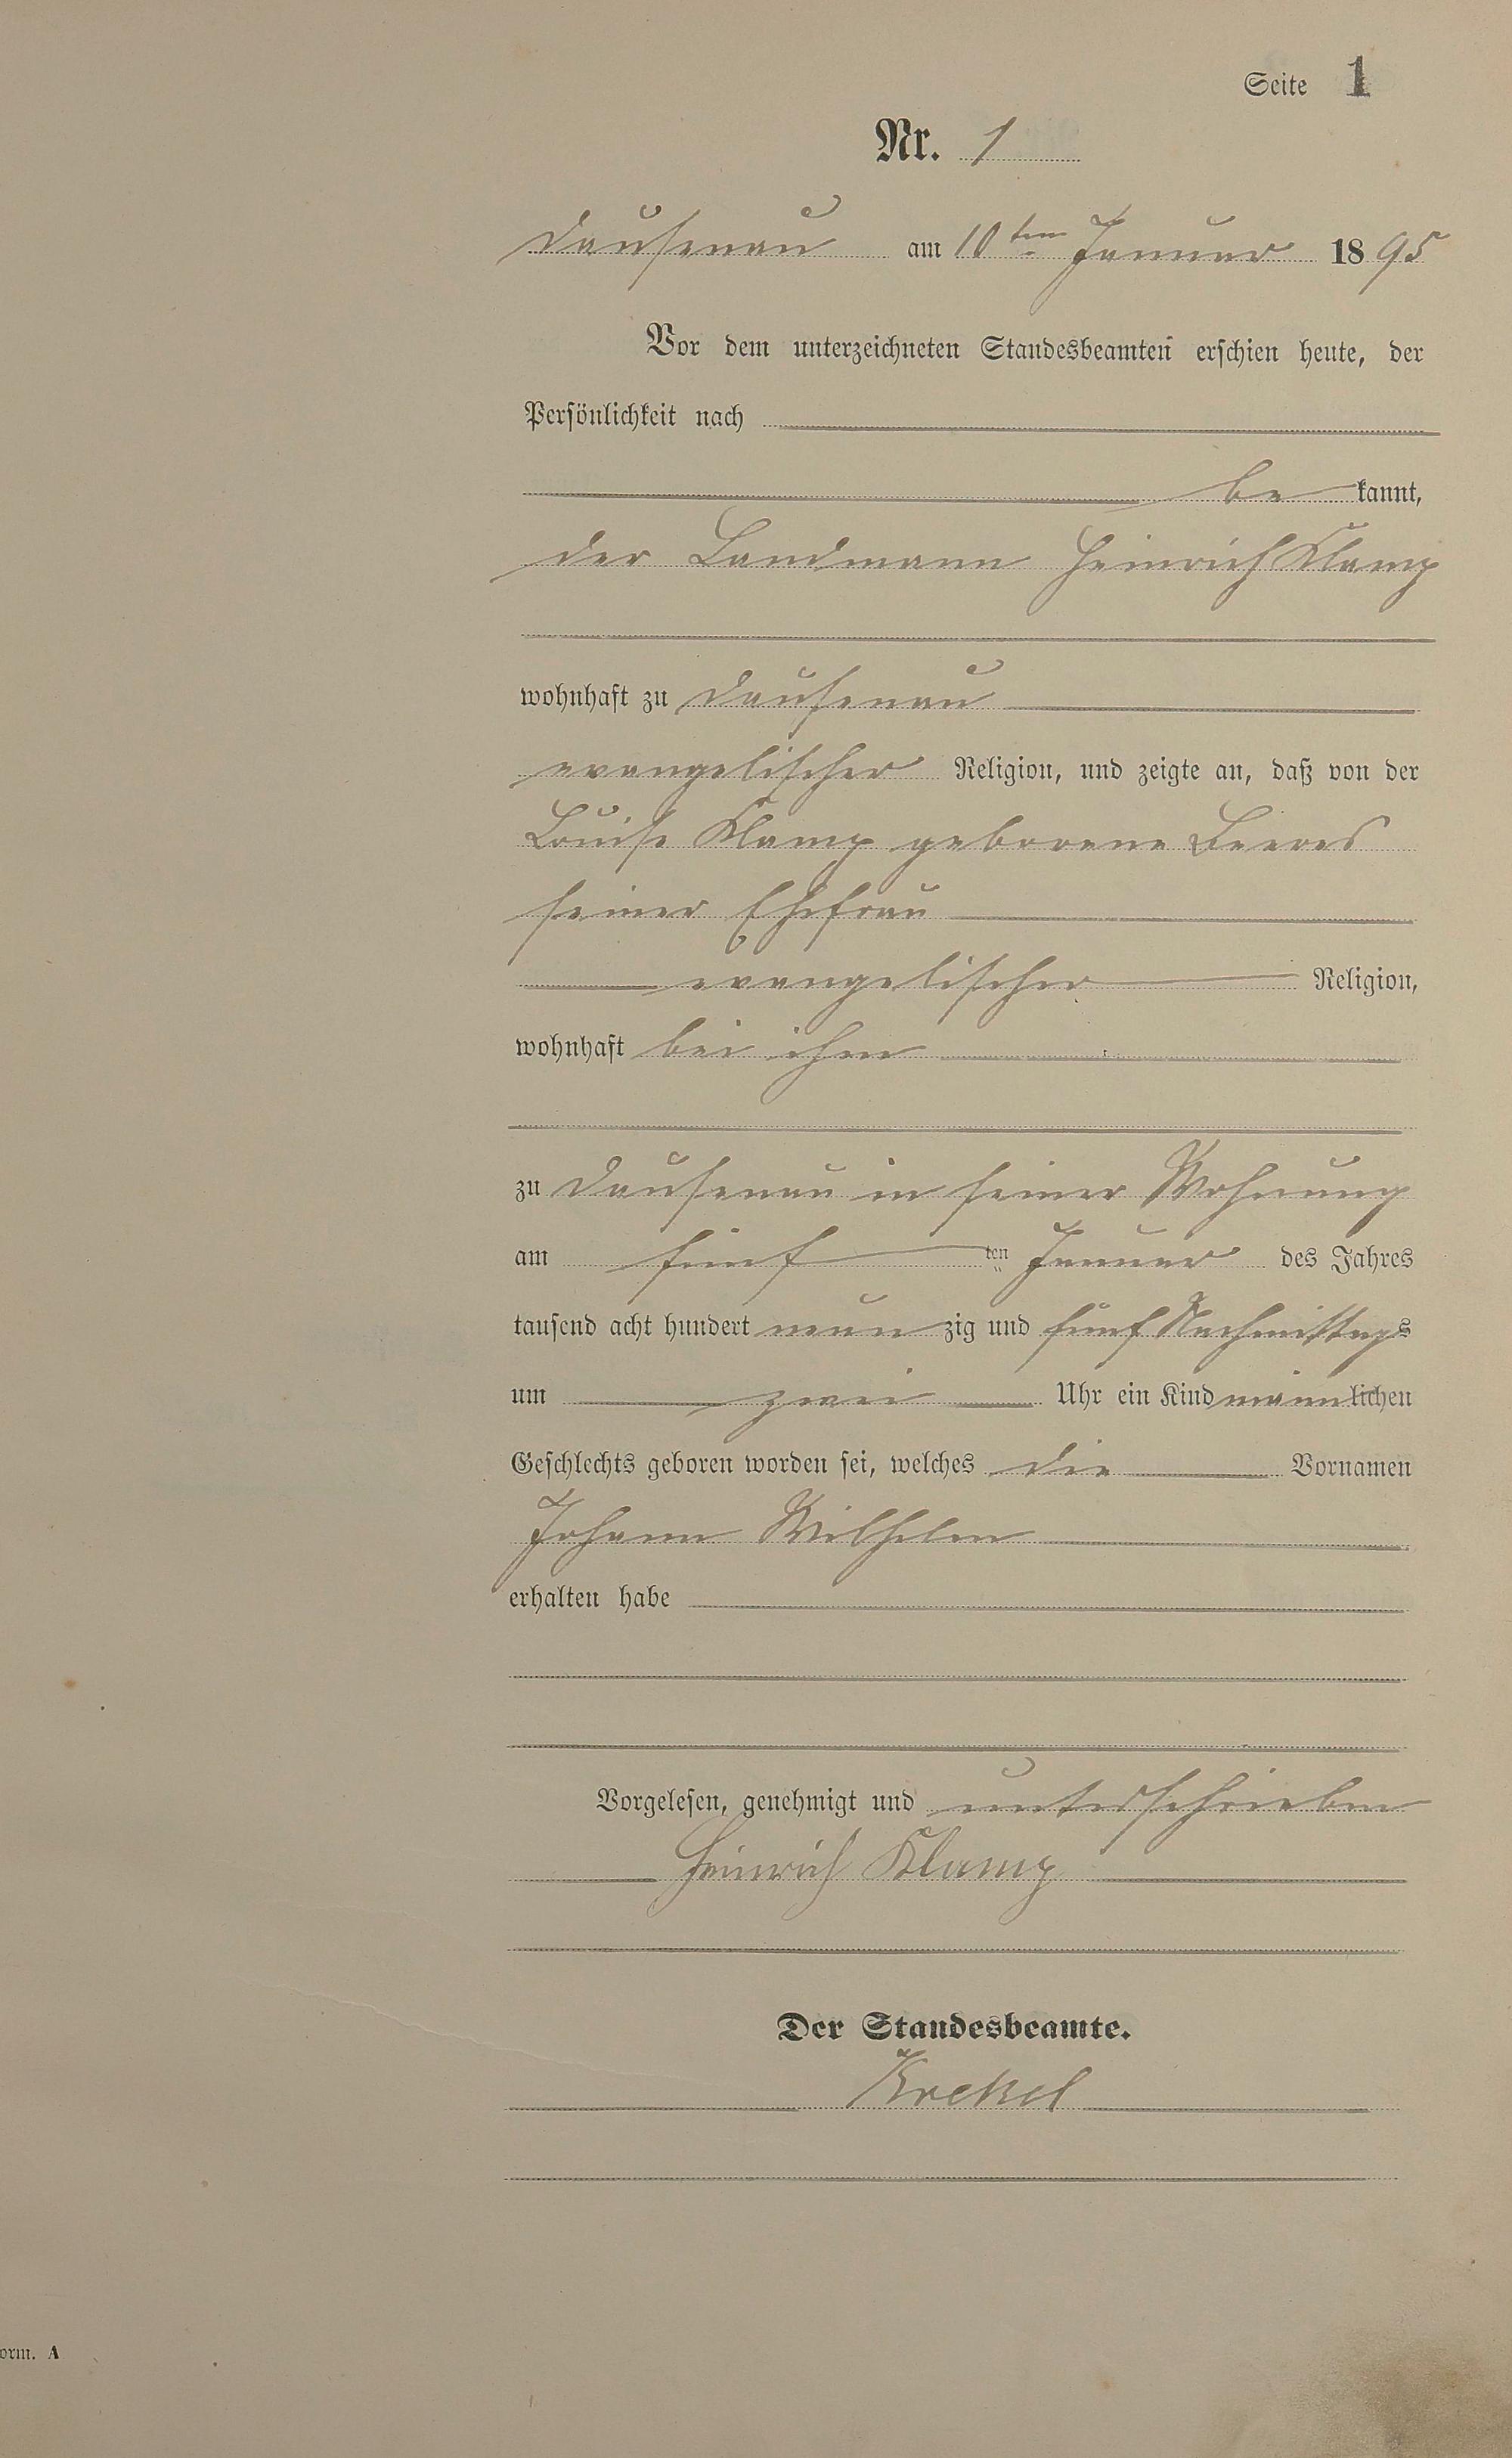 Seite 1
Nr. 1
Dausenau am 10ten Januar 1895
Vor dem unterzeichneten Standesbeamten erschien heute, der
Persönlichkeit nach
be kannt,
der Landmann Heinrich Klamp
wohnhaft zu Dausenau
evangelischer Religion, und zeigte an, daß von der
Louise Klamp geborene Beeres
seiner Ehefrau
evangelischer Religion,
wohnhaft bei ihm
zu Dausenau in seiner Wohnung
am fünf ten Januar des Jahres
tausend acht hundert neun zig und fünf Nachmittags
um zwei Uhr ein Kind männlichen
Geschlechts geboren worden sei, welches die Vornamen
Johann Wilhelm
erhalten habe
Vorgelesen, genehmigt und unterschrieben
Heinrich Klamp
Der Standesbeamte.
Krekel
orm. A